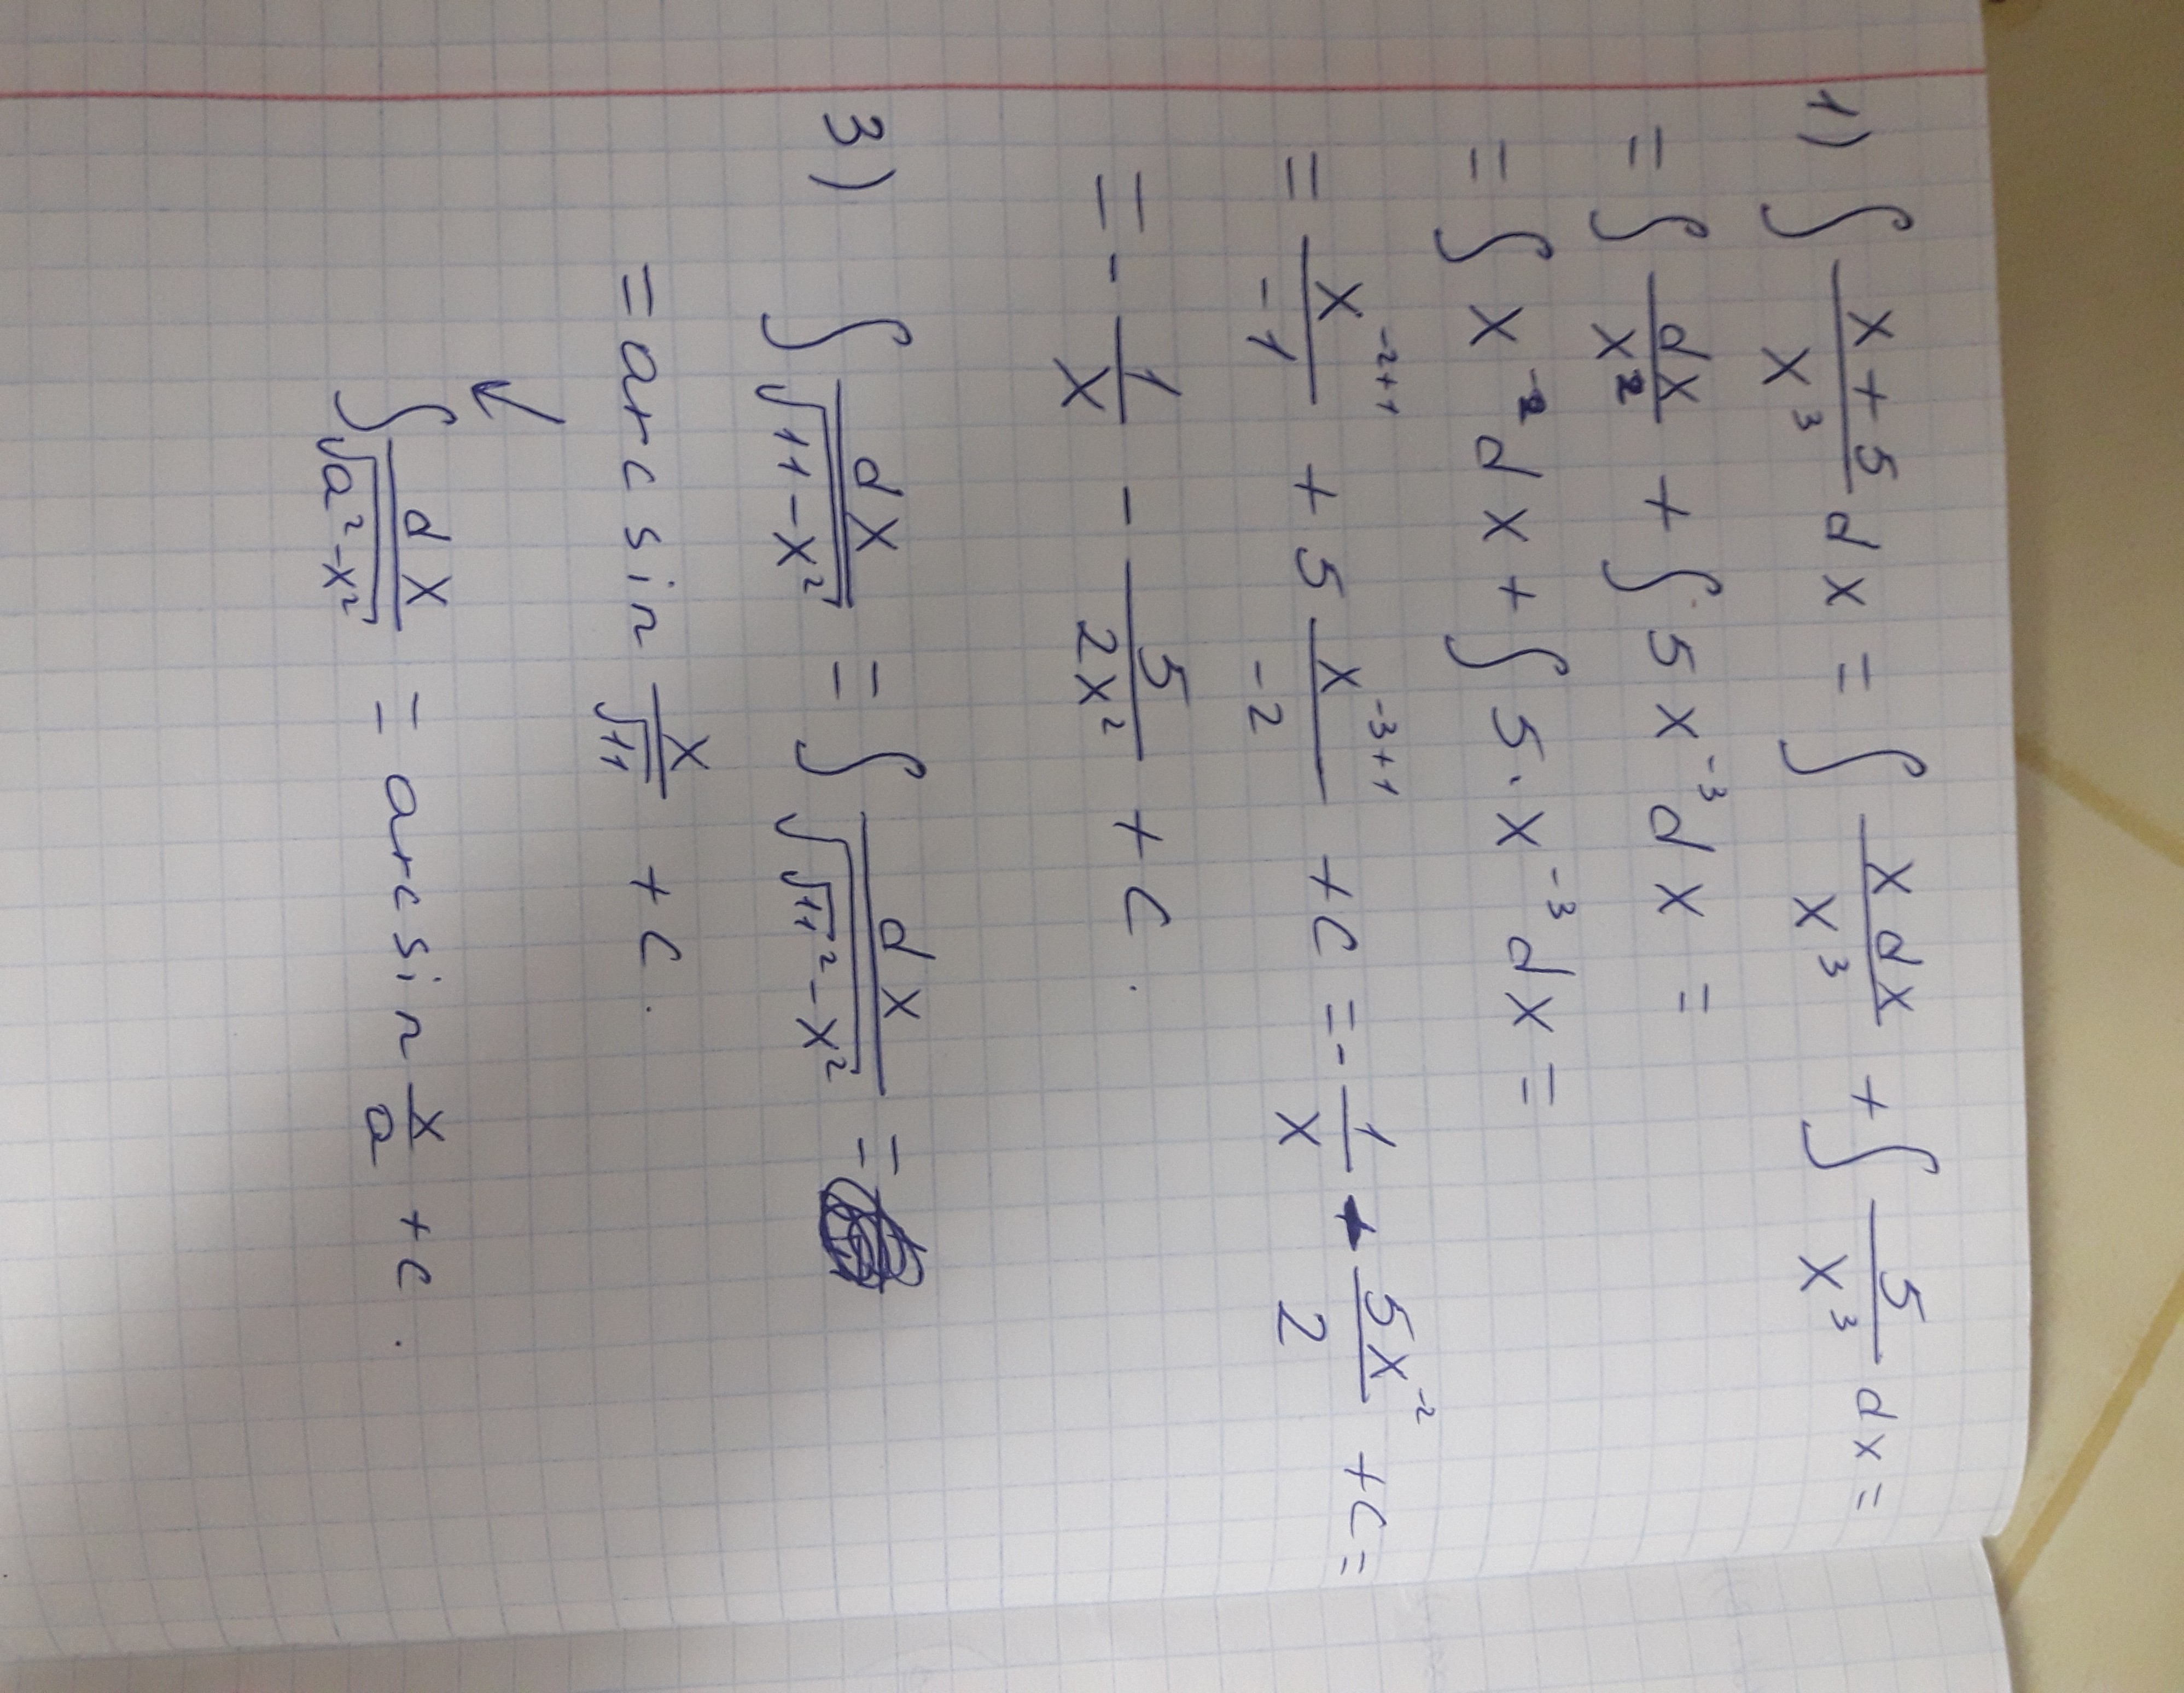 1) ∫ (x+5)/x³ dx = ∫ (x dx)/x³ + ∫ 5/x³ dx =
= ∫ dx/x² + ∫ 5x⁻³ dx =
= ∫ x⁻² dx + ∫ 5·x⁻³ dx =
= x⁻²⁺¹/-1 + 5 x⁻³⁺¹/-2 + C = - 1/x - 5x⁻²/2 + C =
= - 1/x - 5/(2x²) + C.
3) ∫ dx/√(11-x²) = ∫ dx/√(√11² - x²) =
= arcsin x/√11 + C.
↙
∫ dx/√(a²-x²) = arcsin x/a + C.